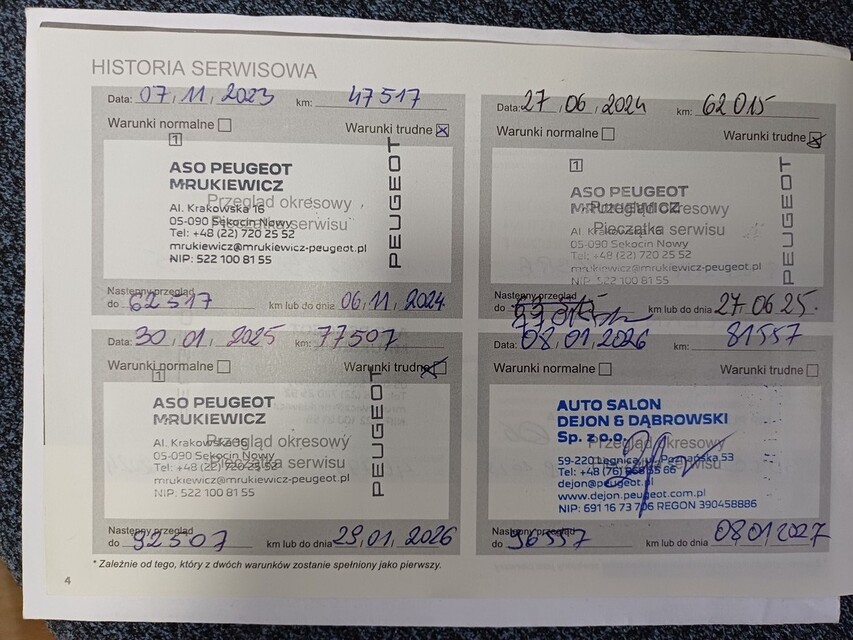 HISTORIA SERWISOWA
Data: 07, 11, 2023 km: 47517
Warunki normalne Warunki trudne
1
ASO PEUGEOT
MRUKIEWICZ
Przegląd okresowy
Al. Krakowska 16
05-090 Sękocin Nowy
Pieczątka serwisu
Tel: +48 (22) 720 25 52
mrukiewicz@mrukiewicz-peugeot.pl
NIP: 522 100 81 55
PEUGEOT
Następny przegląd
do 62517 km lub do dnia 06, 11, 2024
Data: 27, 06, 2024 km: 62015
Warunki normalne Warunki trudne
1
ASO PEUGEOT
MRUKIEWICZ
Przegląd okresowy
Al. Krakowska 16
Pieczątka serwisu
05-090 Sękocin Nowy
Tel: +48 (22) 720 25 52
mrukiewicz@mrukiewicz-peugeot.pl
NIP: 522 100 81 55
PEUGEOT
Następny przegląd
do km lub do dnia 27 06 25.
Data: 30, 01, 2025 km: 77507
Warunki normalne Warunki trudne
1
ASO PEUGEOT
MRUKIEWICZ
Al. Krakowska 16
Przegląd okresowy
05-090 Sękocin Nowy
Pieczątka serwisu
Tel: +48 (22) 720 25 52
mrukiewicz@mrukiewicz-peugeot.pl
NIP: 522 100 81 55
PEUGEOT
Następny przegląd
do 92507 km lub do dnia 29, 01, 2026
Data: 08, 01, 2026 km: 81557
Warunki normalne Warunki trudne
AUTO SALON
DEJON & DĄBROWSKI
Sp. z o.o.
Przegląd okresowy
59-220 Legnica, ul. Poznańska 53
Pieczątka serwisu
Tel: +48 (76)
dejon@peugeot.com.pl
www.dejon.peugeot.com.pl
NIP: 691 16 73 706 REGON 390458886
Następny przegląd
do 96557 km lub do dnia 08 01 2027
* Zależnie od tego, który z dwóch warunków zostanie spełniony jako pierwszy.
4